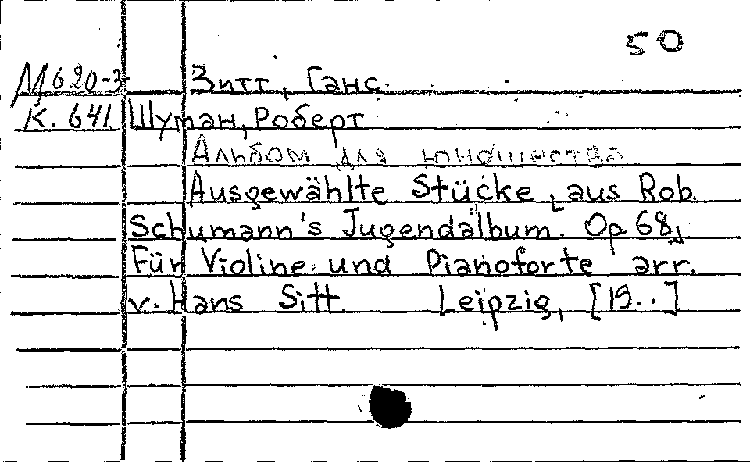 50
М620-3 Зитт, Ганс.
К. 641 Шуман, Роберт
Альбом для юношества
Ausgewählte Stücke, aus Rob.
Schumann's Jugendalbum. Op 68,
Für Violine und Pianoforte arr.
v. Hans Sitt. Leipzig, [19..]